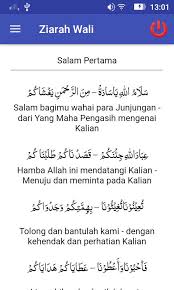 13:01
Ziarah Wali
Salam Pertama
سَلَامُ اللهِ يَاسَادَةْ – مِنَ الرَّحْمٰنِ يَغْشَاكُمْ
Salam bagimu wahai para Junjungan -
dari Yang Maha Pengasih mengenai
Kalian
عِبَادَ اللهِ جِئْنَاكُمْ – قَصَدْنَاكُمْ طَلَبْنَاكُمْ
Hamba Allah ini mendatangi Kalian -
Menuju dan meminta pada Kalian
تُعِيْنُوْنَا تُغِيْثُوْنَا – بِهِمَّتِكُمْ وَجَدْوَاكُمْ
Tolong dan bantulah kami - dengan
kehendak dan perhatian Kalian
فَأَحْبُوْنَا وَأَعْطُوْنَا – عَطَايَاكُمْ هَدَايَاكُمْ